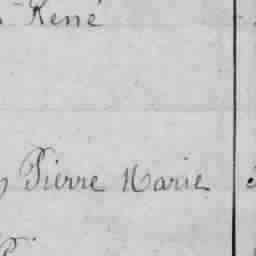 René
Pierre Marie